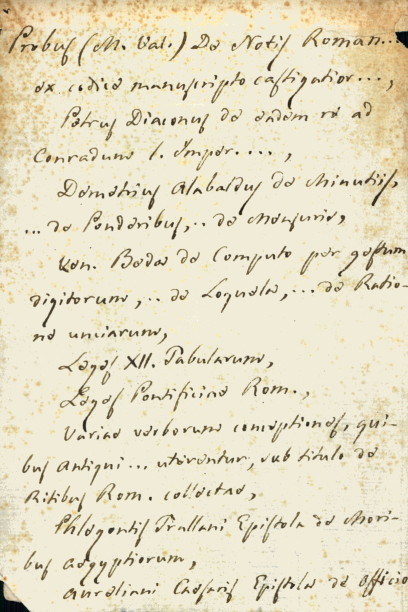 Probus (M. Val.) De Notis Roman...
ex codice manuscripto castigatior...,
Petrus Diaconus de eadem re ad
Conradum I. Imper....,
Demetrius Alabaldus de Minutiis,
... de Ponderibus,.. de Mensuris,
Ven. Beda de Computo per gestum
digitorum,.. de Loquela,... de Ratio-
ne unciarum,
Leges XII. Tabularum,
Leges Pontificiae Rom.,
Variae verborum conceptiones, qui-
bus antiqui... uterentur, sub titulo de
Ritibus Rom. collectae,
Phlegontis Tralliani Epistola de Mori-
bus Aegyptiorum,
Aureliani Caesaris Epistola de officio